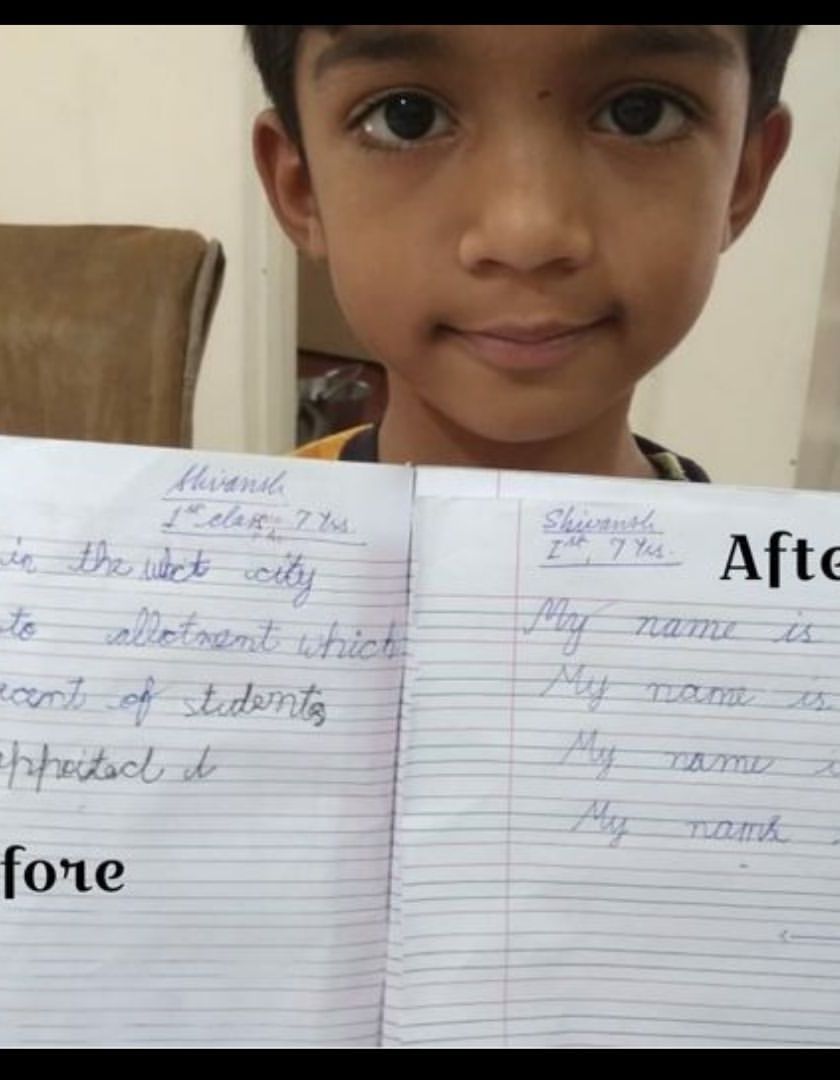 Shivansh
1st class 7 Yrs
in the city
to allotment which
cent of students
fore
Shivansh
Ist, 7 Yrs.
Afte
My name is
My name is
My name i
My name